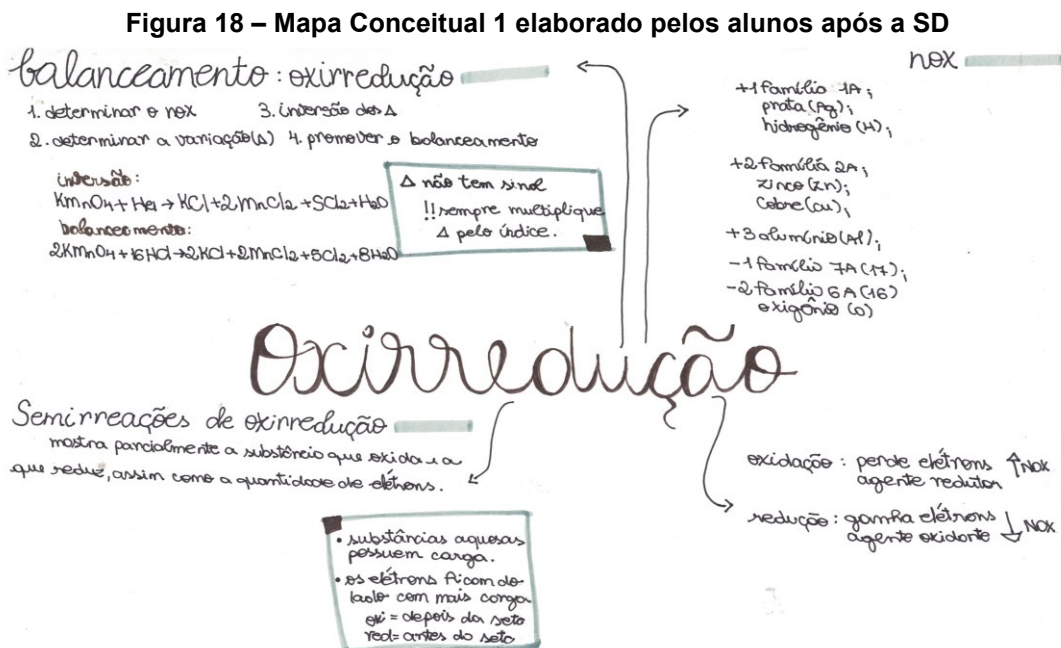 Figura 18 – Mapa Conceitual 1 elaborado pelos alunos após a SD
balanceamento: oxirredução
1. determinar o nox 3. inversão dos Δ
2. determinar a variação(Δ) 4. promover o balanceamento
inversão:
KmnO4 + HCl → KCl + 2MnCl2 + 5Cl2 + H2O
balanceamento:
2KmnO4 + 16HCl → 2KCl + 2MnCl2 + 5Cl2 + 8H2O
Δ não tem sinal
!! sempre multiplique
Δ pelo índice.
nox
+1 família 1A;
prata (Ag);
hidrogênio (H);
+2 família 2A;
zinco (Zn);
Cobre (Cu);
+3 alumínio (Al);
-1 família 7A (17);
-2 família 6A (16)
oxigênio (O)
Oxirredução
Semirreações de oxirredução
mostra parcialmente a substância que oxida e a
que reduz, assim como a quantidade de elétrons.
• substâncias aquosas
possuem carga.
• os elétrons ficam do
lado com mais carga
oxi = depois da seta
red = antes da seta
oxidação: perde elétrons ↑ NOX
agente redutor
redução: ganha elétrons ↓ NOX
agente oxidante